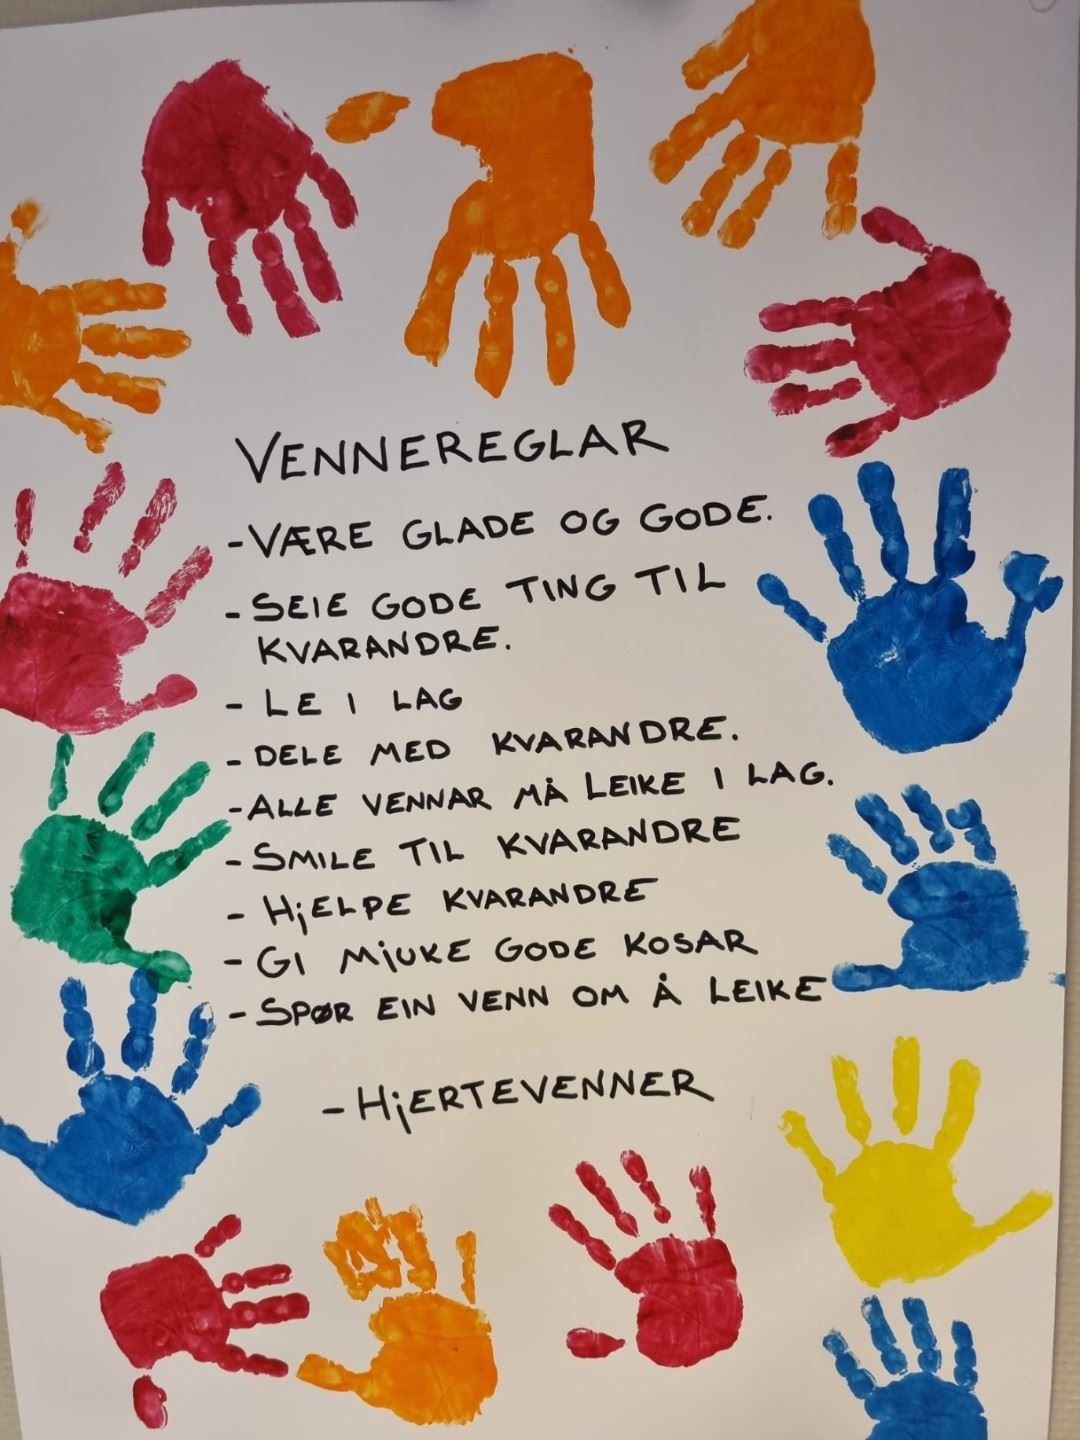 VENNEREGLAR
- VÆRE GLADE OG GODE.
- SEIE GODE TING TIL
KVARANDRE.
- LE I LAG
- DELE MED KVARANDRE.
- ALLE VENNAR MÅ LEIKE I LAG.
- SMILE TIL KVARANDRE
- HJELPE KVARANDRE
- GI MJUKE GODE KOSAR
- SPØR EIN VENN OM Å LEIKE
- HJERTEVENNER